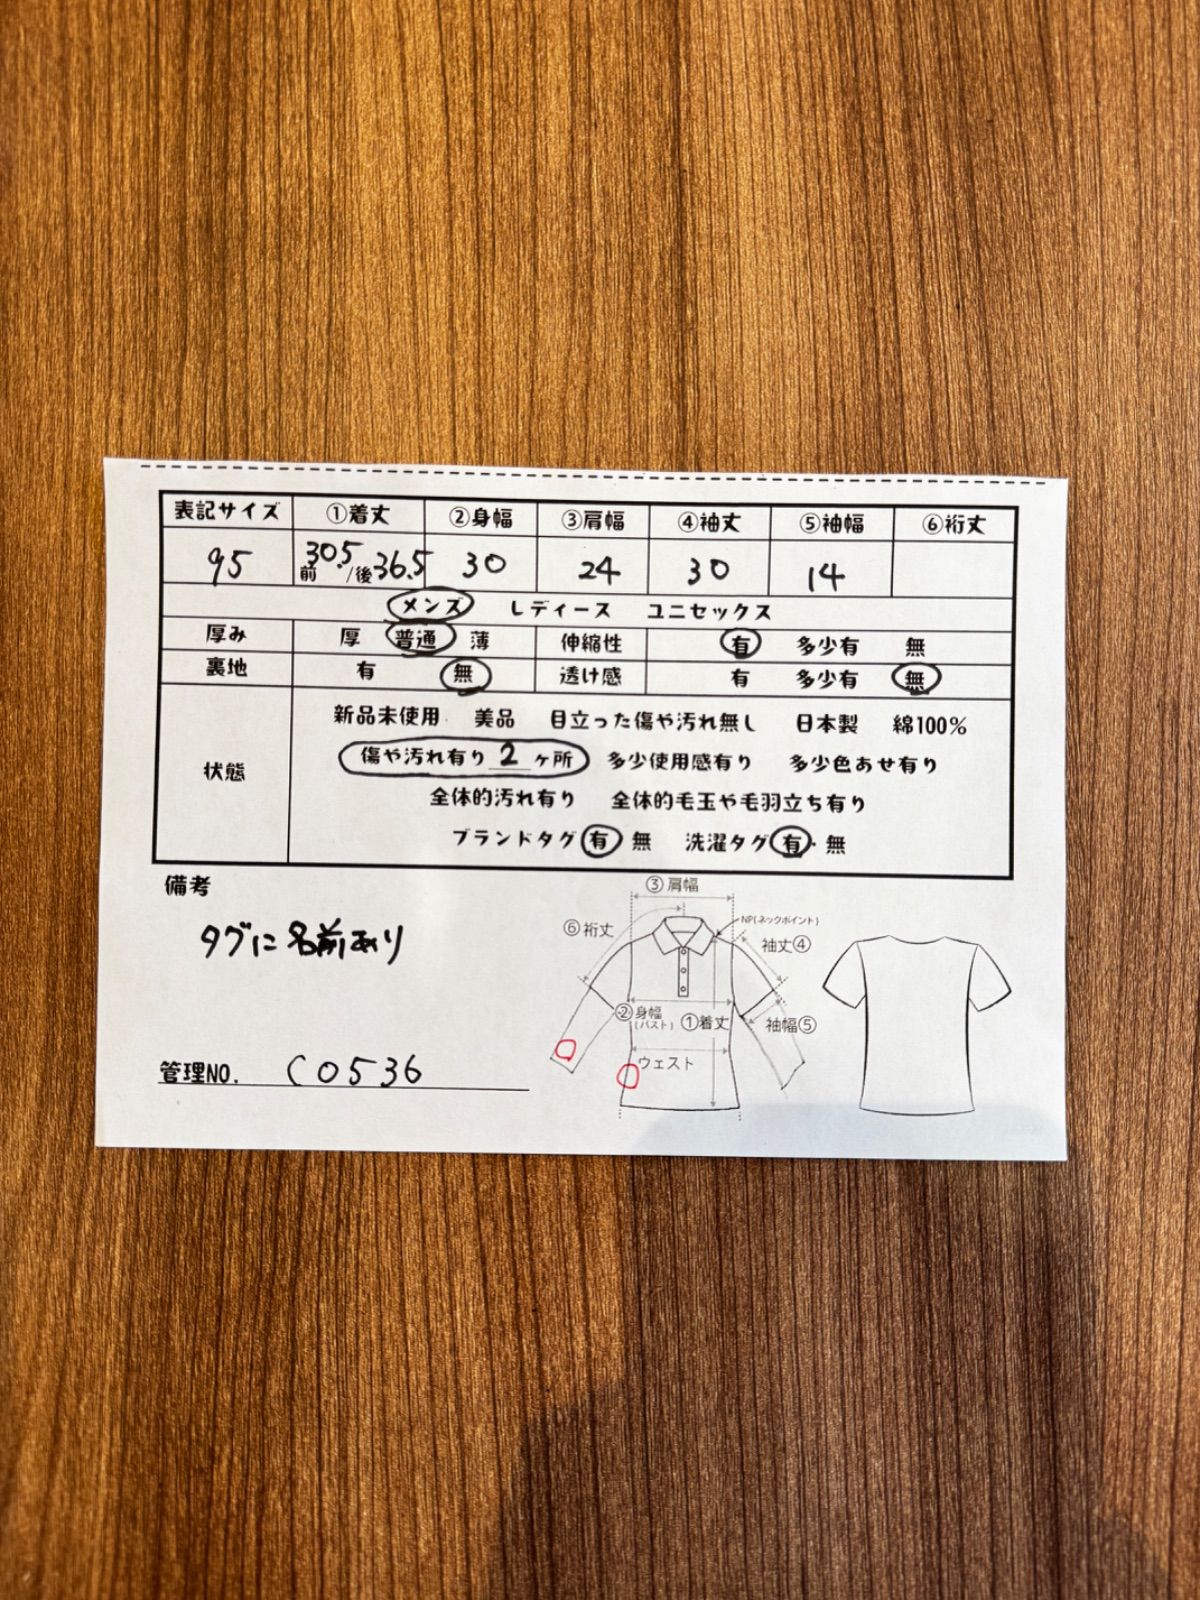 表記サイズ ①着丈 ②身幅 ③肩幅 ④袖丈 ⑤袖幅 ⑥裄丈
95 前30.5/後36.5 30 24 30 14
メンズ レディース ユニセックス
厚み 厚 普通 薄 伸縮性 有 多少有 無
裏地 有 無 透け感 有 多少有 無
状態
新品未使用 美品 目立った傷や汚れ無し 日本製 綿100%
傷や汚れ有り 2 ヶ所 多少使用感有り 多少色あせ有り
全体的汚れ有り 全体的毛玉や毛羽立ち有り
ブランドタグ 有・無 洗濯タグ 有・無
備考
タグに名前あり
管理NO. C0536
③肩幅
NP(ネックポイント)
⑥裄丈
袖丈④
②身幅
(バスト)
①着丈
袖幅⑤
ウェスト